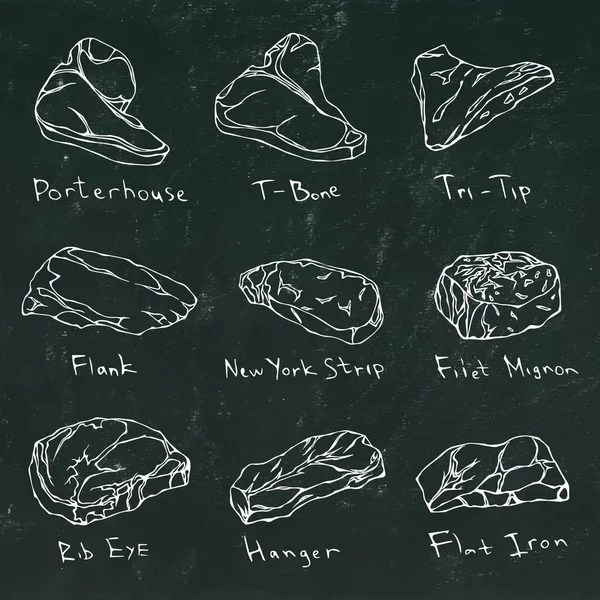 Porterhouse
T-Bone
Tri-Tip
Flank
New York Strip
Filet Mignon
Rib Eye
Hanger
Flat Iron